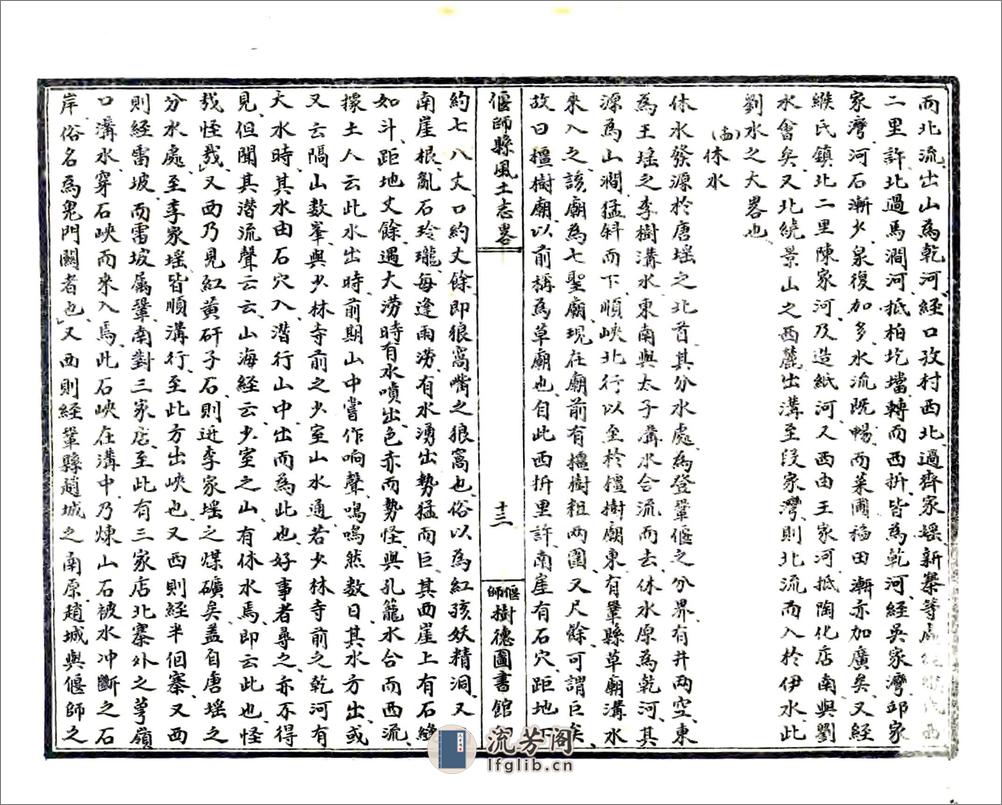 而北流、出山為乾河、經口孜村西北、過齊家瑶新寨等處
二里許、北過馬澗河、抵柏圪壋、轉而西折、皆為乾河、經吳家灣邱家
家灣、河石漸少、泉復加多、水流既暢、而菜圃稲田、漸亦加廣矣、又經
緱氏鎮北二里陳家河、及造紙河、又西由王家河、抵陶化店南、與劉
水會矣、又北繞景山之西麓、出溝至段家灣、則北流而入於伊水、此
劉水之大畧也、
休水
休水發源於唐瑶之北首、其分水處、為登鞏偃之分界、有井兩空、東
為王瑶之李樹溝、水東南與太子溝水合流而去、休水原為乾河、其
源為山澗、猛斜而下、順峽北行、以至於橿樹廟、東有鞏縣草廟溝水
來入之、該廟為七聖廟、現在廟前有橿樹、粗兩圍、又尺餘、可謂巨矣、
故曰橿樹廟、以前稱為草廟也、自此西折里許、南崖有石穴、距地下
偃師縣風土志畧
十二
偃師樹德圖書館
約七八丈、口約丈餘、即狼窩嘴之狼窩也、俗以為紅孩妖精洞、又
南崖根、亂石玲瓏、每逢雨澇、有水湧出、勢猛而巨、其西崖上有石
如斗、距地丈餘、遇大澇時、有水噴出、色赤而勢怪、與孔籠水合而西流、
據土人云、此水出時、前期山中嘗作响聲、嗚嗚然、数日其水方出、或
又云、隔山数峯、與少林寺前之少室山水通、若少林寺前之乾河有
大水時、其水由石穴入、潜行山中、出而為此也、好事者尋之、亦不得
見、但聞其潜流聲云云、山海經云、少室之山、有休水焉、即云此也、怪
哉怪哉、又西乃見紅黄矸子石、則近李家瑶之煤礦矣、盖自唐瑶之
分水處、至李家瑶、皆順溝行、至此方出峽也、又西則經半個寨、又西
則經雷坡、而雷坡属鞏、南對三家店、至此有三家店北寨外之萼嶺
口溝水、穿石峽而來入焉、此石峽在溝中、乃煉山石被水冲斷之石
岸、俗名為鬼門關者也、又西則經鞏縣趙城之南原、趙城與偃師之
流芳阁
lfglib.cn